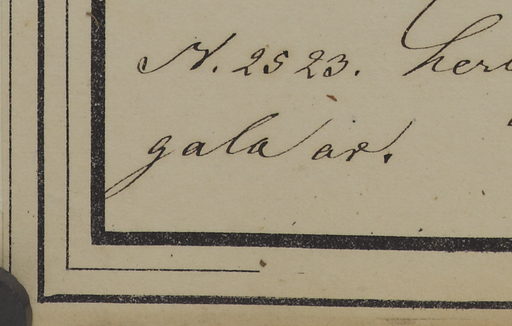 N. 2523. her
gala ar.